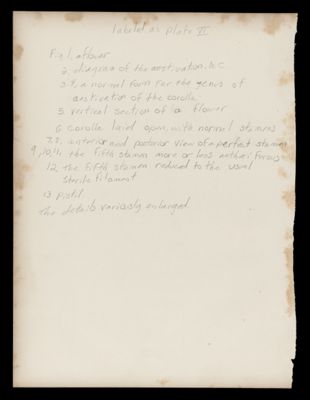 labeled as Plate VI
Fig 1. a flower
2. diagram of the aestivation, &c
3.4, a normal form for the genus of
aestivation of the corolla
5. vertical section of a flower
6 corolla laid open, with normal stamens
7,8, anterior and posterior view of a perfect stamen
9,10,11, the fifth stamen more or less antheriferous
12 the fifth stamen reduced to the usual
sterile filament
13 Pistil.
The details variously enlarged